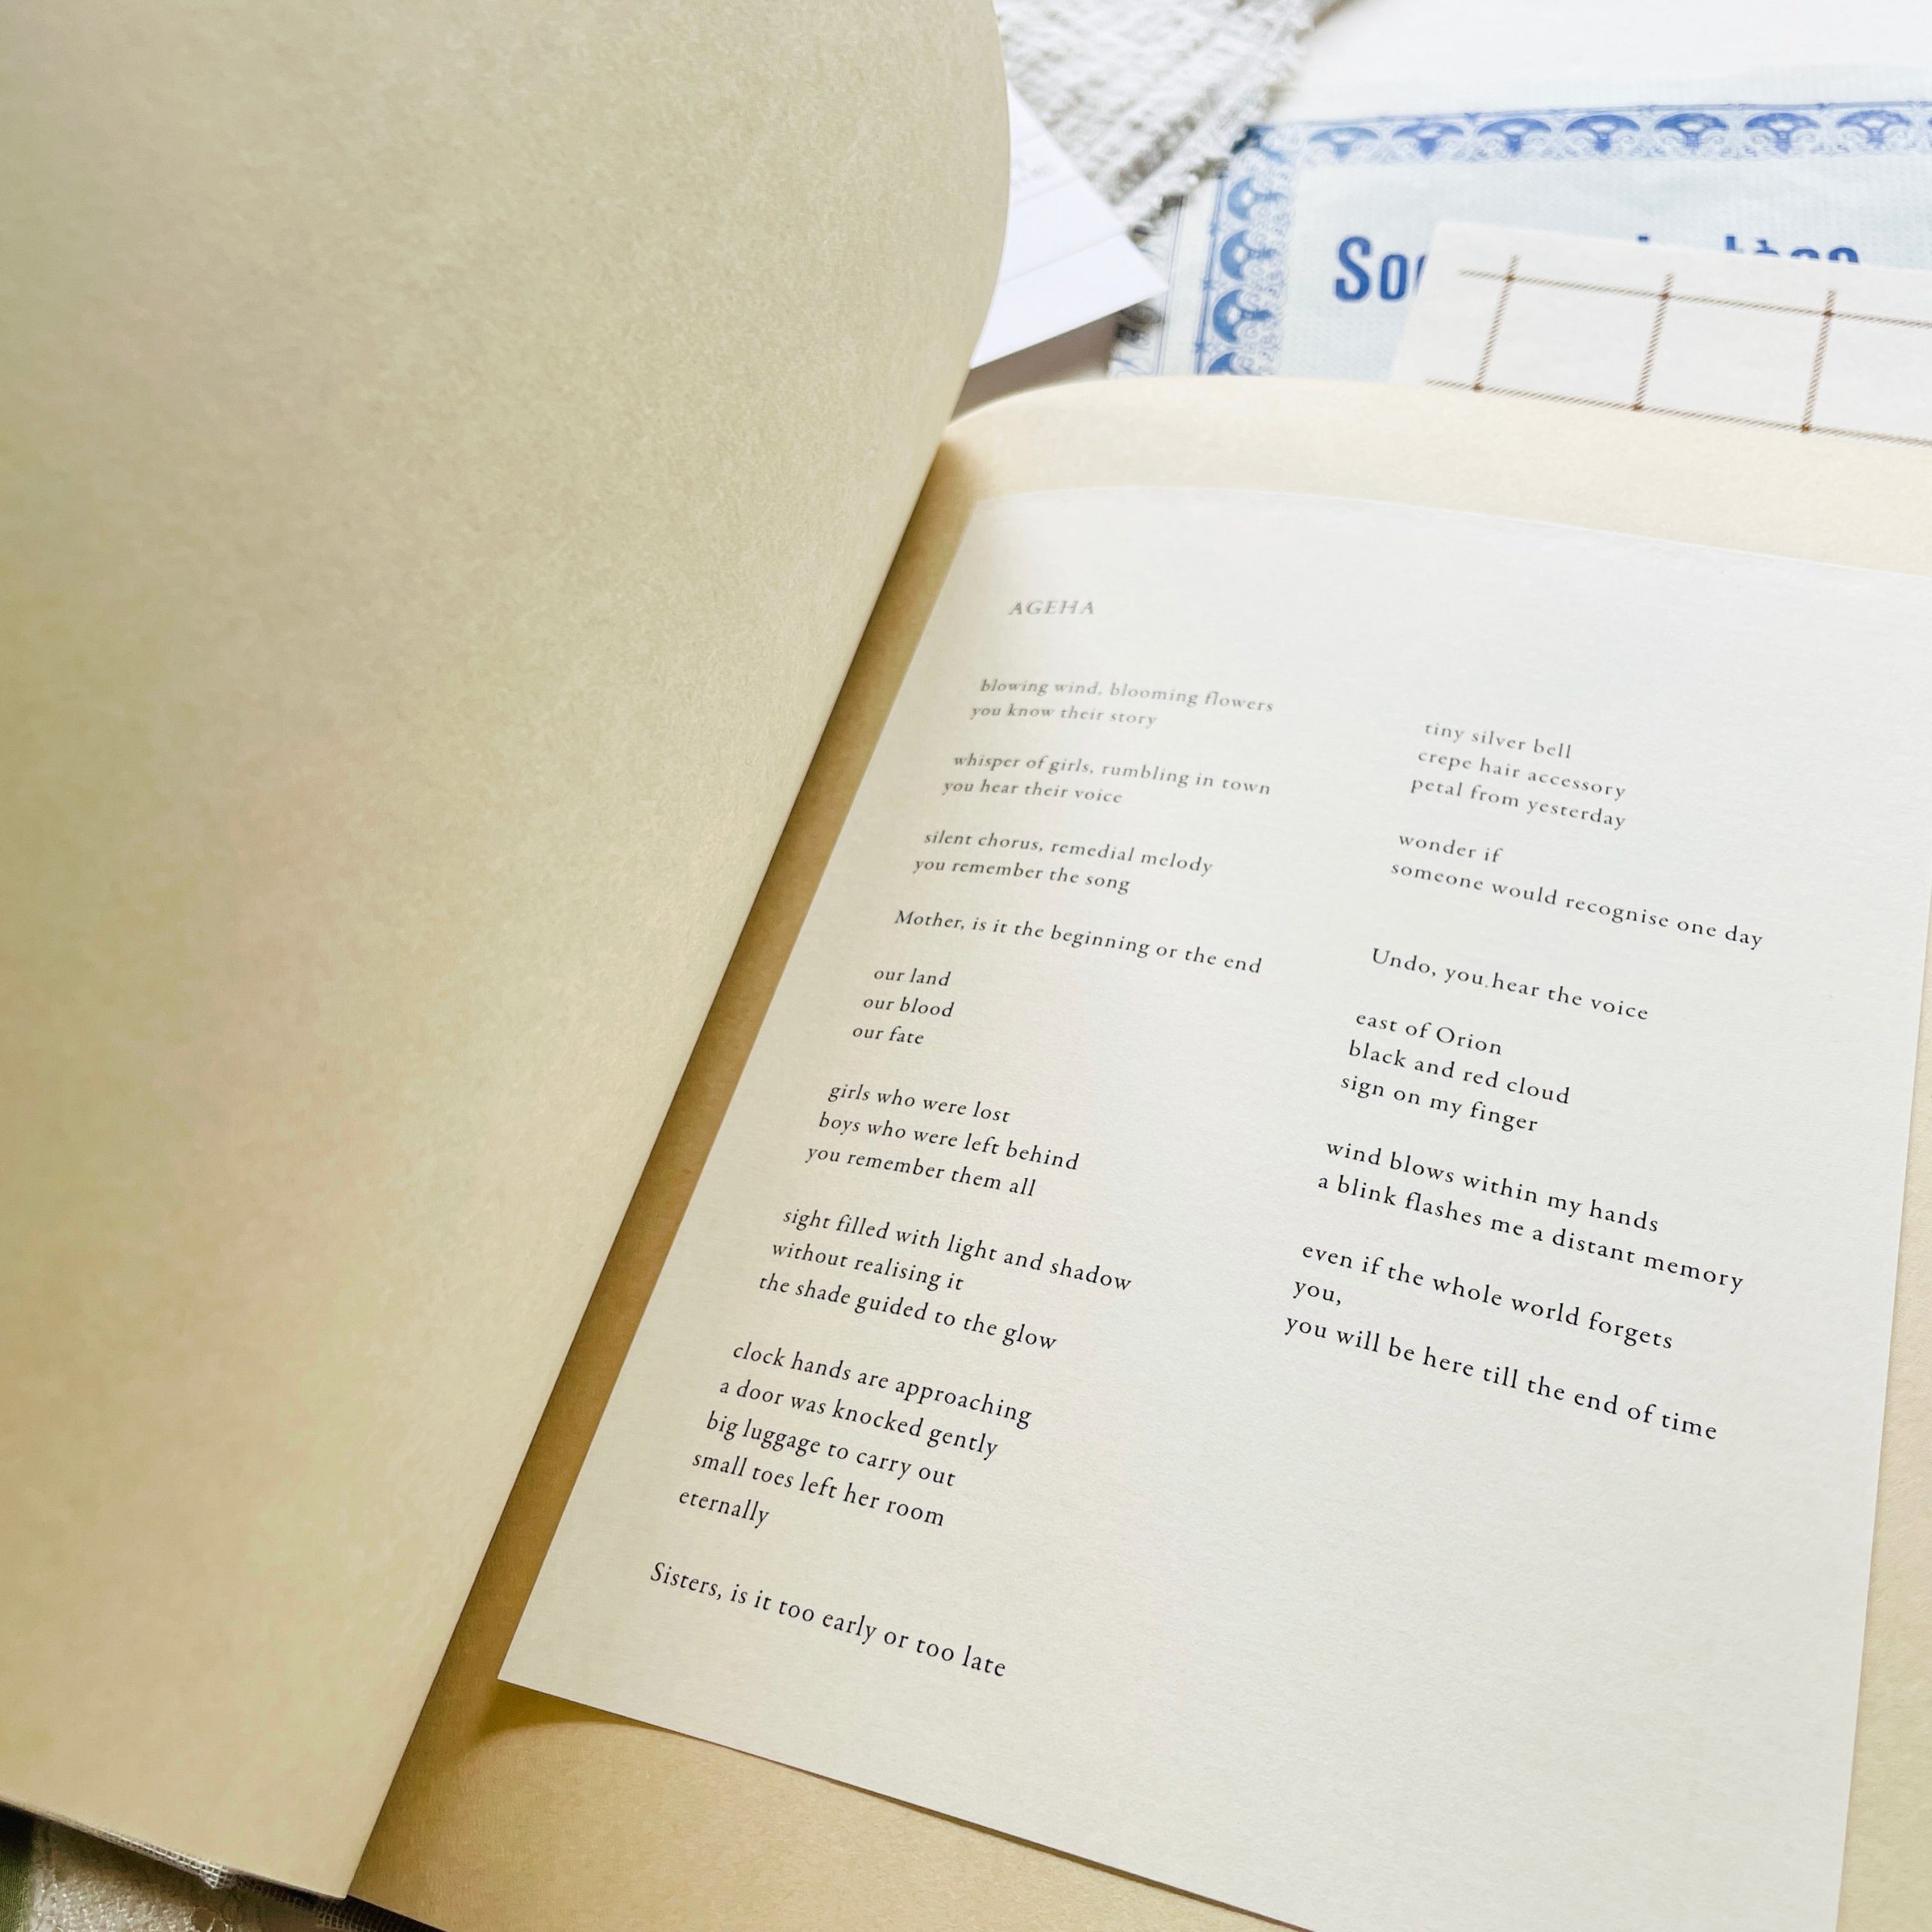 AGEHA
blowing wind, blooming flowers
you know their story
whisper of girls, rumbling in town
you hear their voice
silent chorus, remedial melody
you remember the song
Mother, is it the beginning or the end
our land
our blood
our fate
girls who were lost
boys who were left behind
you remember them all
sight filled with light and shadow
without realising it
the shade guided to the glow
clock hands are approaching
a door was knocked gently
big luggage to carry out
small toes left her room
eternally
Sisters, is it too early or too late
tiny silver bell
crepe hair accessory
petal from yesterday
wonder if
someone would recognise one day
Undo, you hear the voice
east of Orion
black and red cloud
sign on my finger
wind blows within my hands
a blink flashes me a distant memory
even if the whole world forgets
you,
you will be here till the end of time